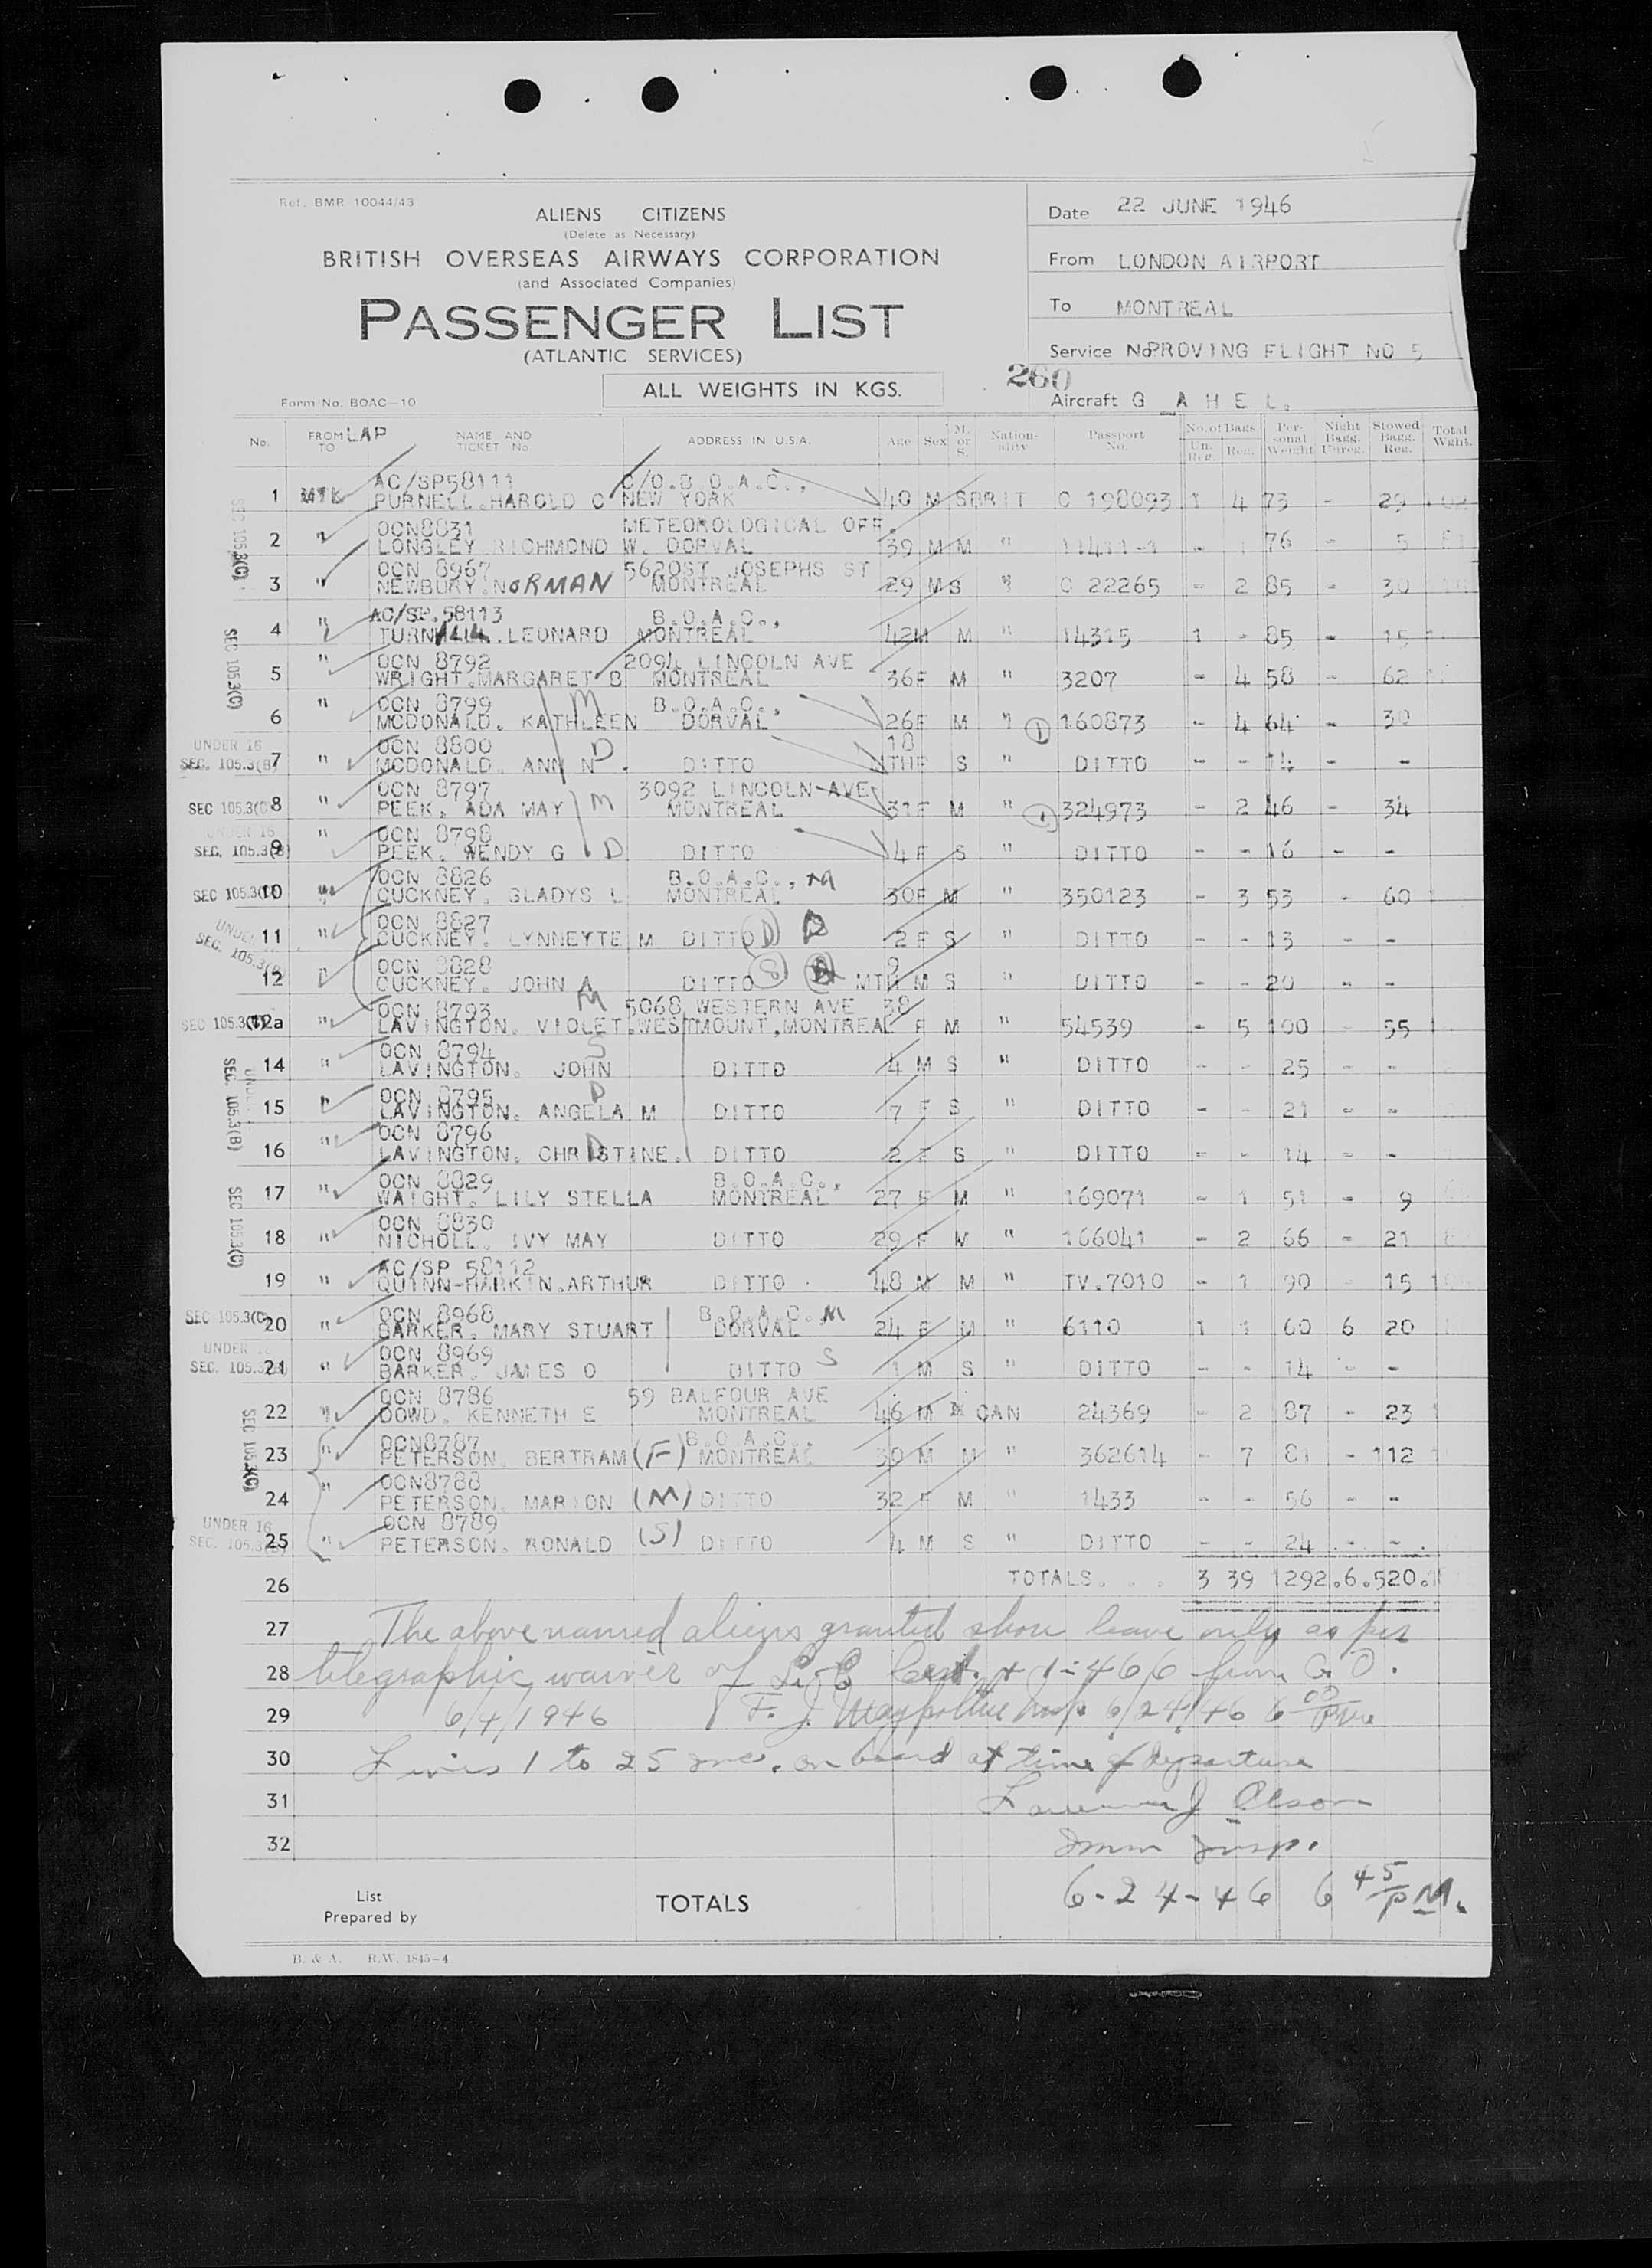 Ref. BMR 10044/43
ALIENS CITIZENS
(Delete as Necessary)
BRITISH OVERSEAS AIRWAYS CORPORATION
(and Associated Companies)
PASSENGER LIST
(ATLANTIC SERVICES)
ALL WEIGHTS IN KGS.
Form No. BOAC—10
Date 22 JUNE 1946
From LONDON AIRPORT
To MONTREAL
Service No PROVING FLIGHT NO 5
260
Aircraft G _ A H E L.
No. FROM LAP TO NAME AND TICKET No. ADDRESS IN U.S.A. Age Sex M. or S. Nationality Passport No. No. of Bags Un. Reg. Reg. Personal Weight Night Bagg. Unreg. Stowed Bagg. Reg. Total Wght.
AC/SP58111 C/O.B.O.A.C.,
1 MTK PURNELL.HAROLD C NEW YORK 40 M S BRIT C 198093 1 4 73 - 29
OCN8831 METEOROLOGICAL OFF.
2 " LONGLEY RICHMOND W. DORVAL 39 M M " - 76 - 5
OCN 8967 5620ST JOSEPHS ST
3 " NEWBURY.NORMAN MONTREAL 29 M S " C 22265 - 2 85 - 30
AC/SP.58113 B.O.A.C.,
4 " LEONARD MONTREAL 42M M " 14315 1 - 85 - 15
OCN 8792 2094 LINCOLN AVE
5 " WRIGHT.MARGARET B MONTREAL 36F M " 3207 - 4 58 - 62
OCN 8799 M B.O.A.C.,
6 " MCDONALD. KATHLEEN DORVAL 26F M " 1 160873 - 4 64 - 30
UNDER 16 OCN 8800 D 18
SEC. 105.3(B) 7 " MCDONALD. ANN N. DITTO MTHF S " DITTO - - 14 - -
OCN 8797 3092 LINCOLN AVE
SEC 105.3(C) 8 " PEEK. ADA MAY M MONTREAL 31F M " 1 324973 - 2 46 - 34
UNDER 16 OCN 8798
SEC. 105.3(B) 9 " PEEK. WENDY G D DITTO 4 F S " DITTO - - 16 - -
OCN 8826 B.O.A.C., M
SEC 105.3(C) 10 " CUCKNEY. GLADYS L MONTREAL 30F M " 350123 - 3 53 - 60
UNDER OCN 8827
SEC. 105.3(B) 11 " CUCKNEY. LYNNEYTE M DITTO D 2 F S " DITTO - - 13 - -
OCN 8828 9
12 " CUCKNEY. JOHN A DITTO S MTH M S " DITTO - - 20 - -
OCN 8793 M 5068 WESTERN AVE 38
SEC 105.3(C) 12a " LAVINGTON. VIOLET.WESTMOUNT,MONTREAL F M " 54539 - 5 100 - 55
OCN 8794 S
14 " LAVINGTON. JOHN DITTO 4 M S " DITTO - - 25 - -
OCN 8795 D
15 " LAVINGTON. ANGELA M DITTO 7 F S " DITTO - - 21 - -
OCN 8796
16 " LAVINGTON. CHRISTINE. DITTO 2 F S " DITTO - - 14 - -
OCN 8829 B.O.A.C.,
17 " WAIGHT. LILY STELLA MONTREAL 27 F M " 169071 - 1 51 - 9
OCN 8830
18 " NICHOLL. IVY MAY DITTO 29 F M " 166041 - 2 66 - 21
AC/SP 58112
19 " QUINN-HARKIN.ARTHUR DITTO 48 M M " TV.7010 - 1 90 - 15
OCN 8968 B.O.A.C. M
SEC 105.3(C) 20 " BARKER. MARY STUART DORVAL 24 F M " 6110 1 1 60 6 20
UNDER OCN 8969
SEC. 105.3(B) 21 " BARKER. JAMES O DITTO S 1 M S " DITTO - - 14 - -
OCN 8786 59 BALFOUR AVE
22 " DOWD. KENNETH E MONTREAL 46 M CAN 24369 - 2 87 - 23
OCN8787 B.O.A.C.,
23 " PETERSON. BERTRAM (F) MONTREAL 30 M M " 362614 - 7 81 - 112
OCN8788
24 " PETERSON. MARION (M) DITTO 32 F M " 1433 - - 56 - -
UNDER 16 OCN 8789
SEC. 105.3(B) 25 " PETERSON. RONALD (S) DITTO 4 M S " DITTO - - 24 - -
26 TOTALS. . . 3 39 1292.6.520.
27 The above named aliens granted shore leave only as per
28 telegraphic waiver of from C.O.
29 6/4/1946 F. J. Insp. 6/24/46 6 00 PM
30 Lines 1 to 25 inc. on board at time of departure
31 J Olson
32 Imm Insp.
6-24-46 6 45 P.M.
List Prepared by TOTALS
B. & A. R.W. 1845-4